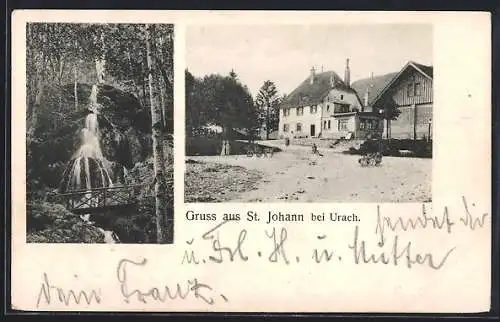 Gruss aus St. Johann bei Urach. sendet dir
u. Frl. H. u. Mutter
dein Franz.